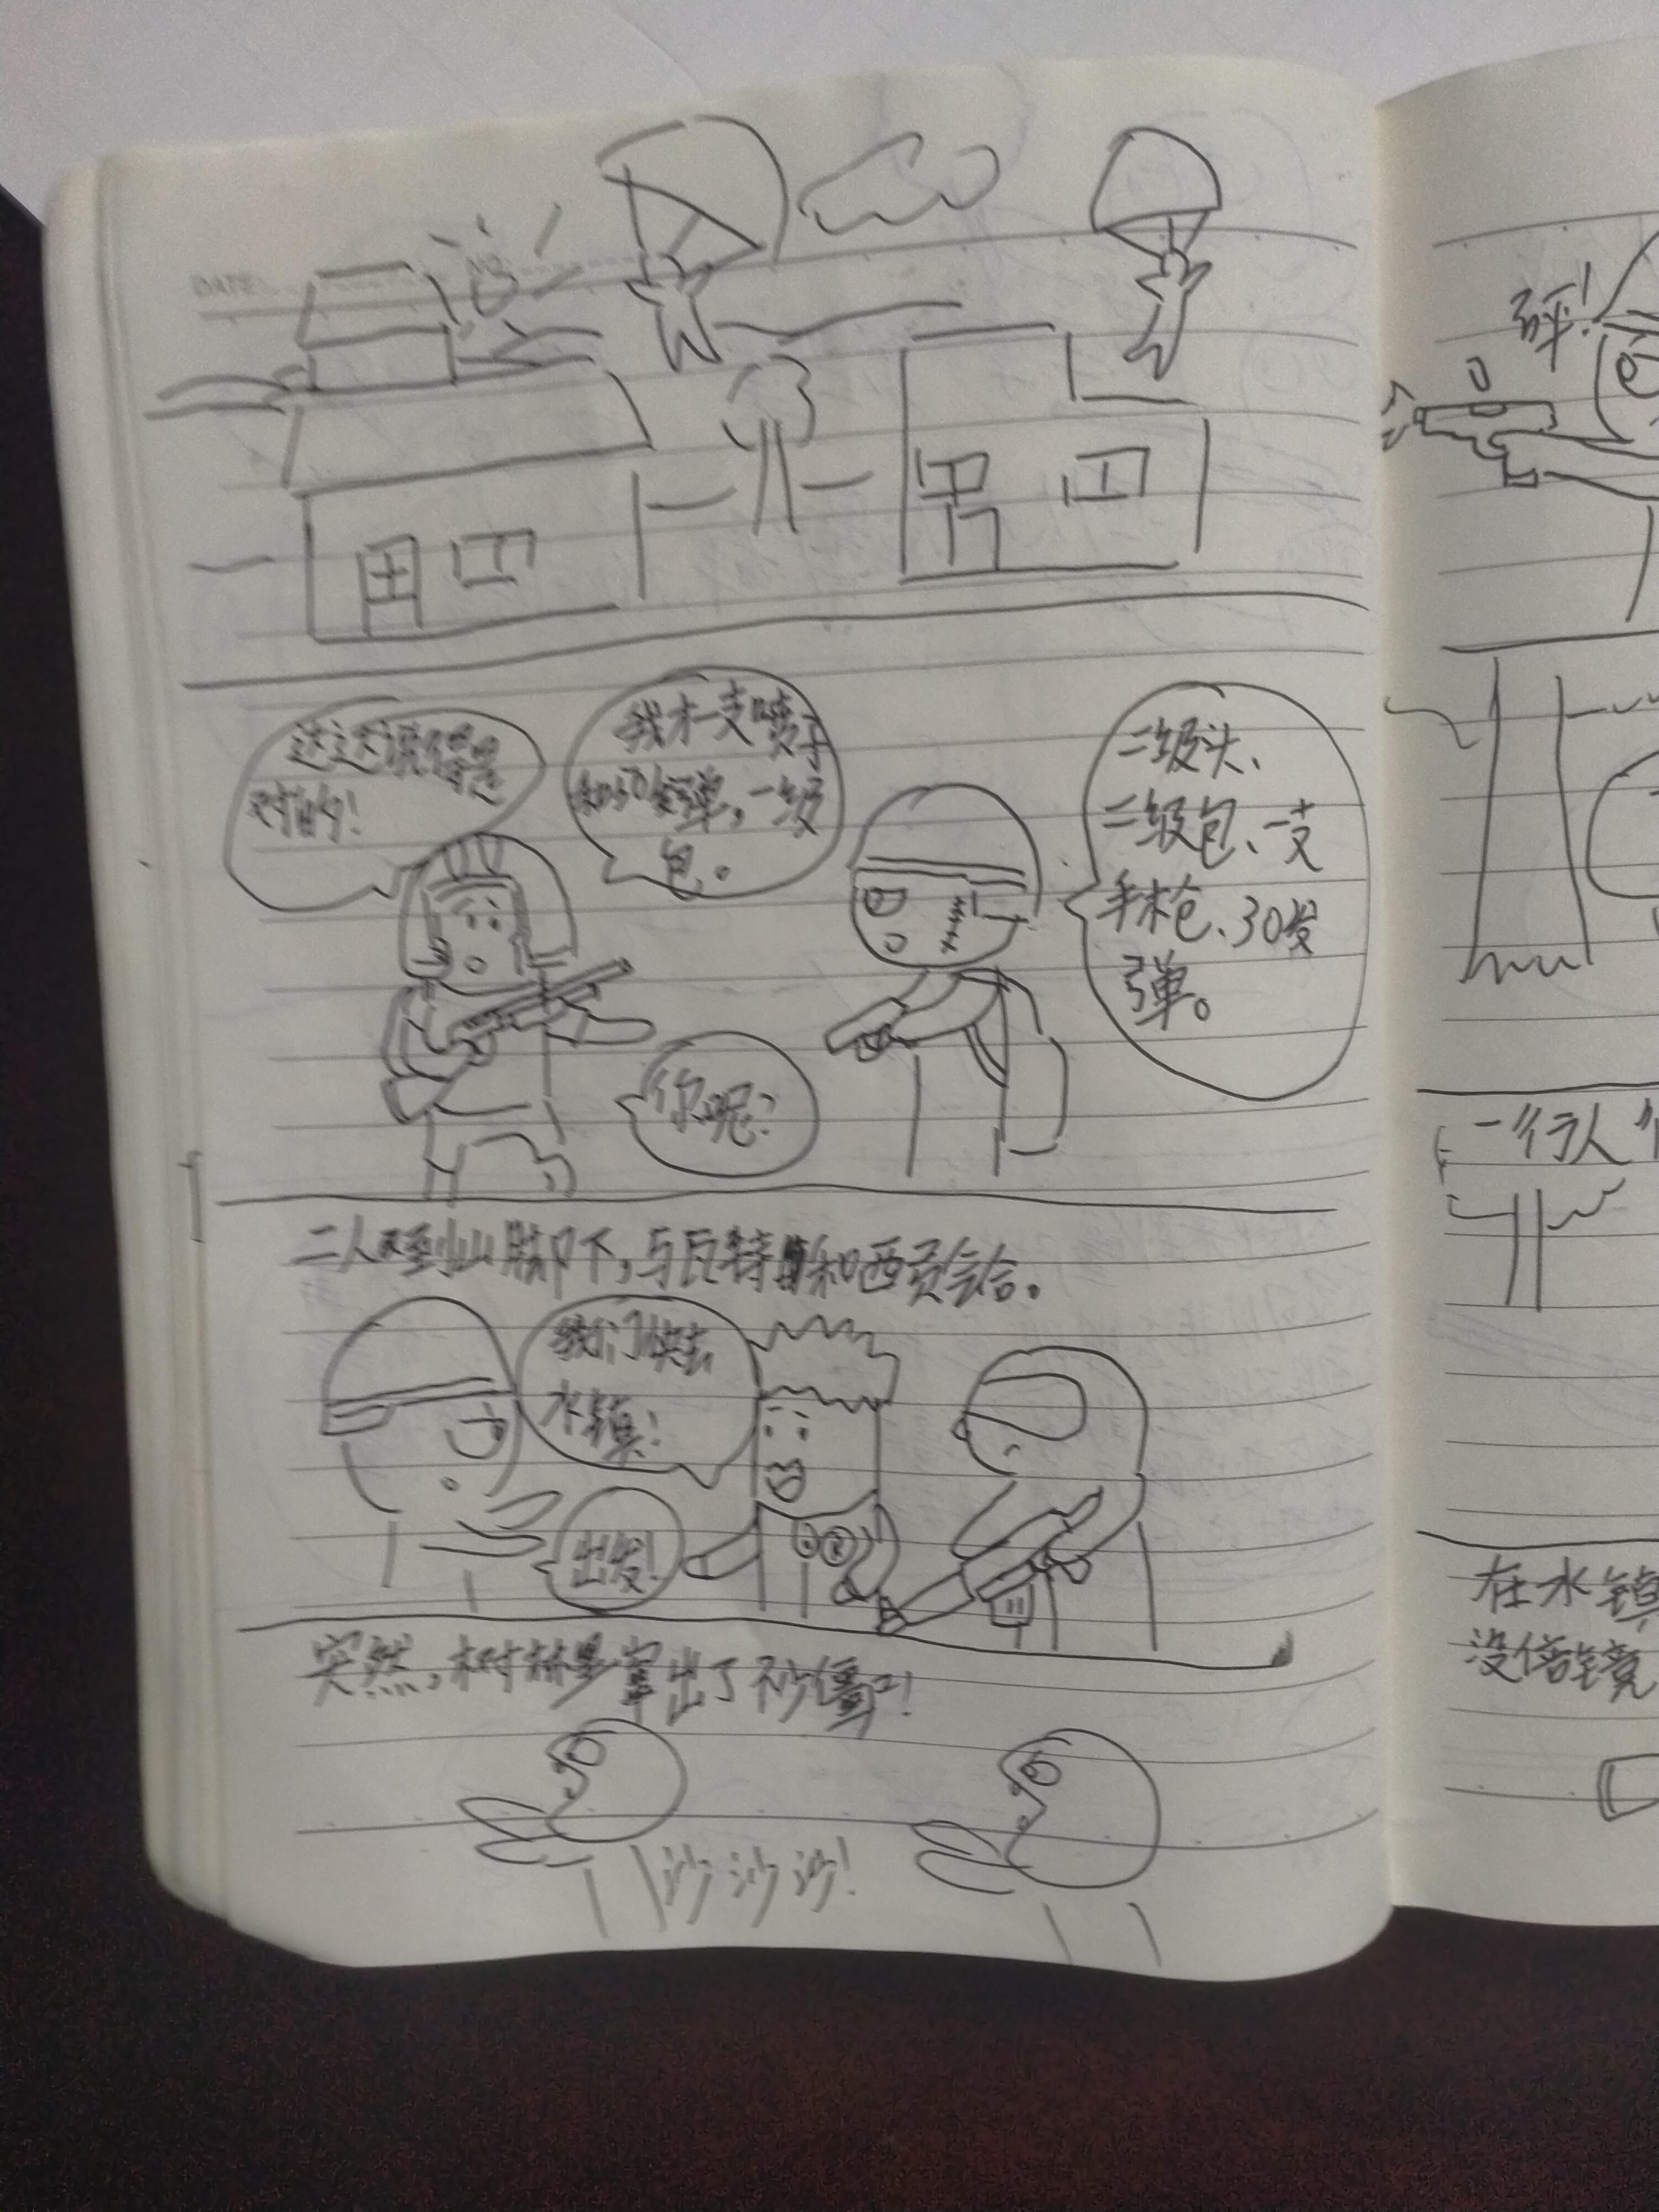 DATE:
对的!
我才一支喷子
和50发弹,一级
包。
二级头、
二级包、一支
手枪、30发
弹。
你呢?
二人来到山脚下,与瓦特和西贡会合。
我们快去
水镇!
出发!
突然,树林里窜出了秒僵!
沙沙沙!
砰!
一行人
在水镇
没倍镜